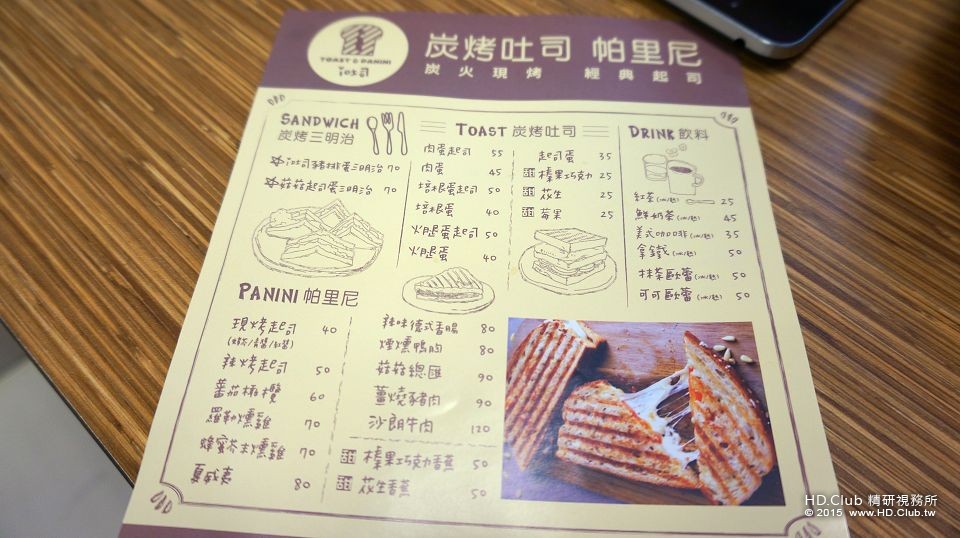 TOAST & PANINI
炭烤吐司 帕里尼
炭火現烤 經典起司
SANDWICH
炭烤三明治
吐司豬排蛋三明治 70
菇菇起司蛋三明治 70
TOAST 炭烤吐司
肉蛋起司 55
肉蛋 45
培根蛋起司 50
培根蛋 40
火腿蛋起司 50
火腿蛋 40
起司蛋 35
甜 榛果巧克力 25
甜 花生 25
甜 莓果 25
DRINK 飲料
紅茶(冰/熱) 25
鮮奶茶(冰/熱) 45
美式咖啡(冰/熱) 35
拿鐵(冰/熱) 50
抹茶歐蕾(冰/熱) 50
可可歐蕾(冰/熱) 50
PANINI 帕里尼
現烤起司 40
辣烤起司 50
蕃茄橄欖 60
羅勒燻雞 70
蜂蜜芥末燻雞 70
夏威夷 80
辣味德式香腸 80
煙燻鴨肉 80
菇菇總匯 90
薑燒豬肉 90
沙朗牛肉 120
甜 榛果巧克力香蕉 50
甜 花生香蕉 50
HD.Club 精研視務所
© 2015 www.HD.Club.tw